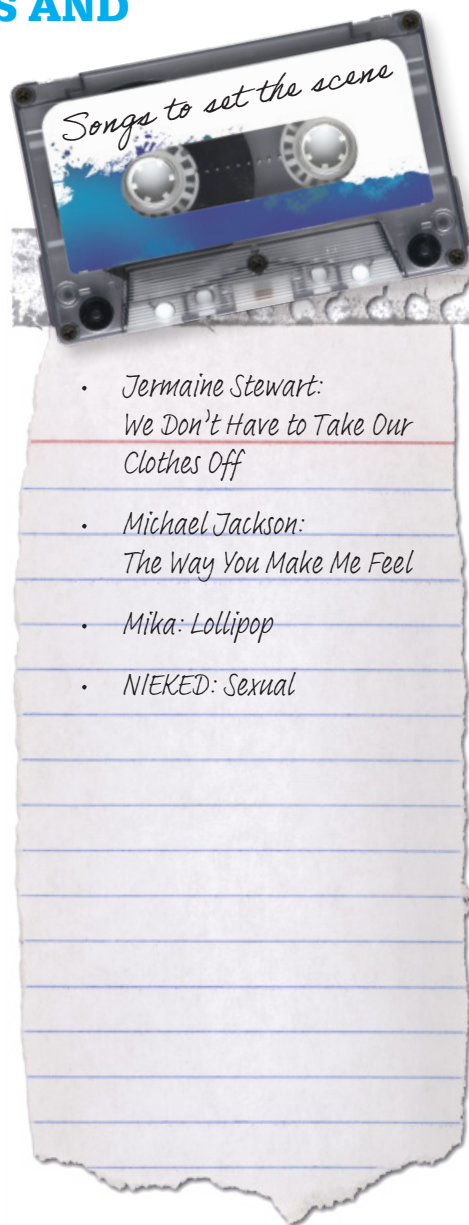 S AND
Songs to set the scene
• Jermaine Stewart:
We Don't Have to Take Our
Clothes Off
• Michael Jackson:
The Way You Make Me Feel
• Mika: Lollipop
• NIEKED: Sexual